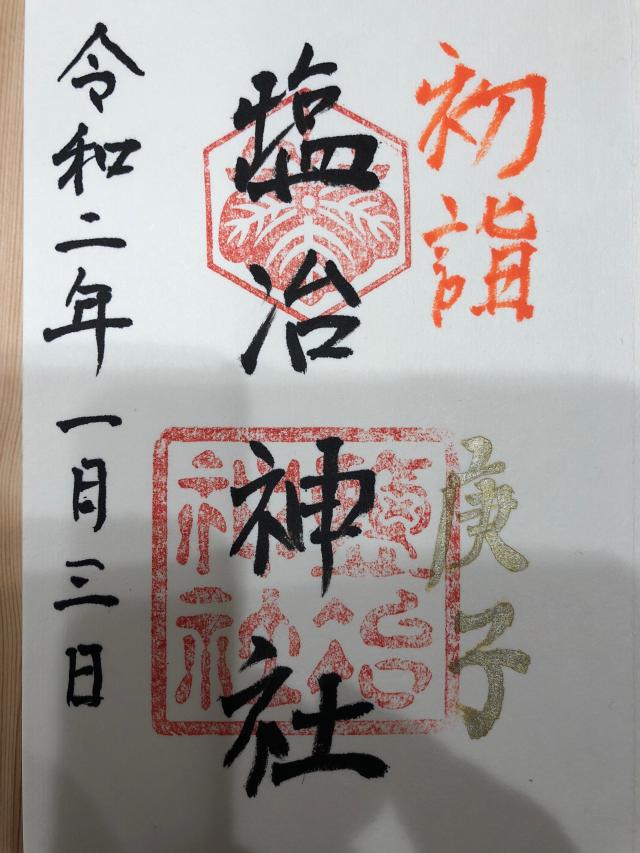 初詣
庚子
鹽冶神社
鹽冶
神社
令和二年一月三日